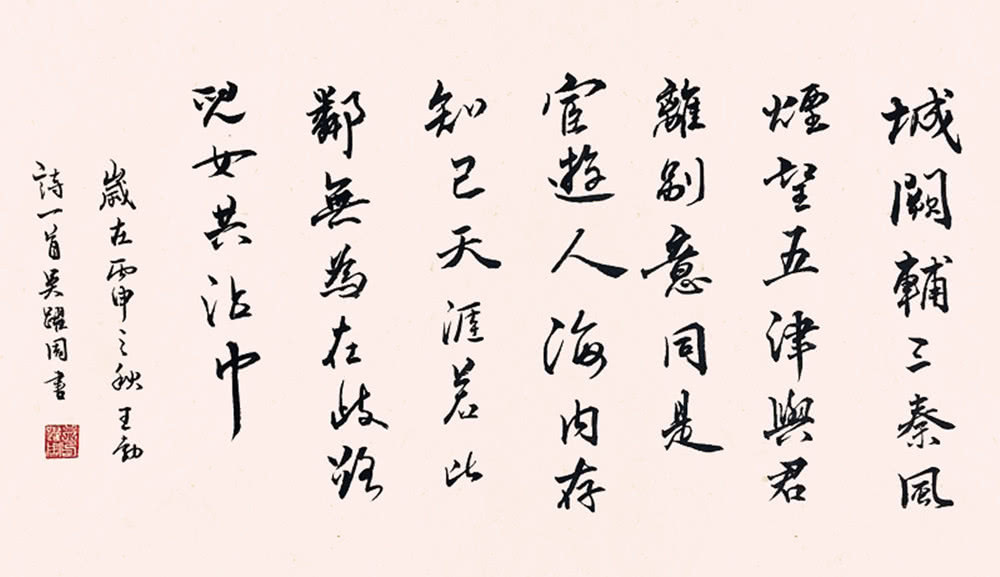 城闕輔三秦風
煙望五津與君
離別意同是
宦遊人海内存
知己天涯若比
鄰無為在歧路
兒女共沾巾
歲在丙申之秋王勃
詩一首吴躍周書